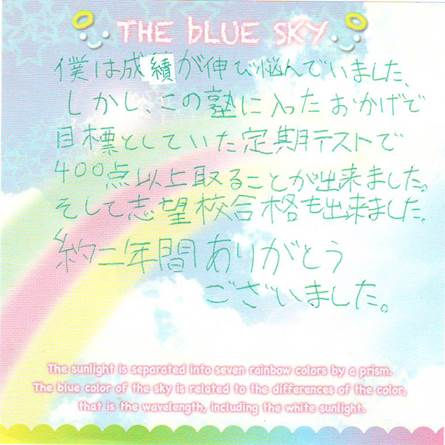 THE bLUE SKY
僕は成績が伸び悩んでいました、
しかし、この塾に入ったおかげで
目標としていた定期テストで
400点以上取ることが出来ました。
そして志望校合格も出来ました。
約二年間ありがとう
ございました。
The sunlight is separated into seven rainbow colors by a prism.
The blue color of the sky is related to the differences of the color,
that is the wavelength, including the white sunlight.